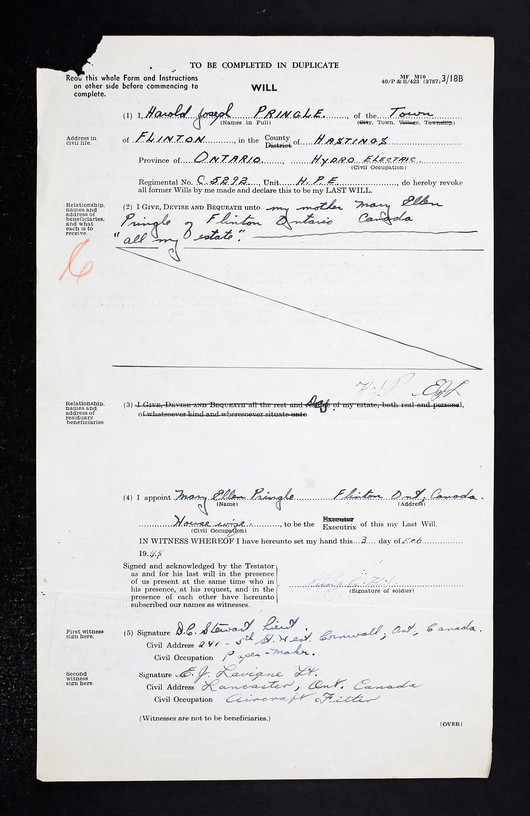 TO BE COMPLETED IN DUPLICATE
Read this whole Form and Instructions
on other side before commencing to
complete.
WILL
MF M10
40/P & S/423 (2767) 3/18B
(1) I, Harold Joseph PRINGLE, of the Town
(Names in Full) (City, Town, Village, Township)
Address in
civil life.
of FLINTON, in the County of HASTINGS
District
Province of ONTARIO, HYDRO ELECTRIC.
(Civil Occupation)
Regimental No. C.5292, Unit H.P.E., do hereby revoke
all former Wills by me made and declare this to be my LAST WILL.
Relationship,
names and
address of
beneficiaries,
and what
each is to
receive.
(2) I GIVE, DEVISE AND BEQUEATH unto my mother Mary Ellen
Pringle of Flinton Ontario Canada
"all my estate".
Relationship,
names and
address of
residuary
beneficiaries
(3) I GIVE, DEVISE AND BEQUEATH all the rest and of my estate, both real and personal,
of whatsoever kind and wheresoever situate unto
(4) I appoint Mary Ellen Pringle Flinton Ont, Canada.
(Name) (Address)
House wife, to be the Executor of this my Last Will.
(Civil Occupation) Executrix
IN WITNESS WHEREOF I have hereunto set my hand this 3 day of
19
Signed and acknowledged by the Testator
as and for his last will in the presence
of us present at the same time who in
his presence, at his request, and in the
presence of each other have hereunto
subscribed our names as witnesses.
(Signature of soldier)
First witness
sign here.
(5) Signature D.C. Stewart Lieut.
Civil Address 241 - 5th St. West, Cornwall, Ont, Canada.
Civil Occupation Paper-maker.
Second
witness
sign here.
Signature E. J. Lavigne Lt.
Civil Address Lancaster, Ont. Canada
Civil Occupation Aircraft Fitter
(Witnesses are not to be beneficiaries.)
(OVER)